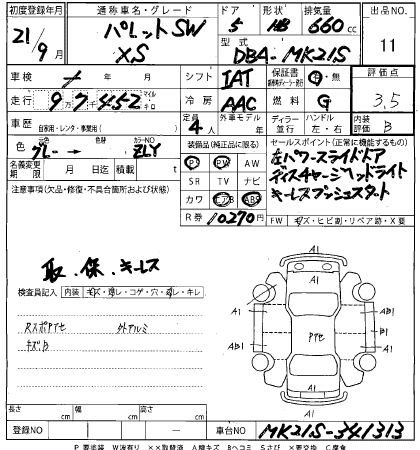 初度登録年月 通称車名・グレード ドア 形状 排気量 出品NO
21/9月 パレットSW XS 5 HB 660cc 11
型式 DBA-MK21S
車検 年 月 シフト IAT 保証書 有・無 評価点
走行 9万7千452 マイル キロ 冷房 AAC 燃料 G 3.5
車歴 自家用・レンタ・事業用( ) 定員 4人 外車モデル 年 ディーラー 並行 ハンドル 左・右 内装評価 B
元色 グレー→ 色替 カラーNO ZLY 装備品(純正品に限る) セールスポイント(正常に機能するもの)
名義変更期限 月 日迄 積載量 t PS PW AW 左パワースライドドア
注意事項(欠品・修復・不具合箇所および状態) SR TV ナビ ディスチャージヘッドライト
カワ エアB ABS キーレスプッシュスタート
R券 10270円 FW キズ・ヒビ割・リペア跡・X要
取・保・キーレス
検査員記入 内装 キズ・汚レ・コゲ・穴・破レ・キレ
RスポPテセ 外アルミ
キズB
A1
A1 A1
AB1 Pテセ AB1
B1 A1
A1
長さ cm 幅 cm 高さ cm
登録NO — 車台NO MK21S-341313
P要塗装 W波有り ××取替済 A線キズ Bヘコミ Sサビ ×要交換 C腐食